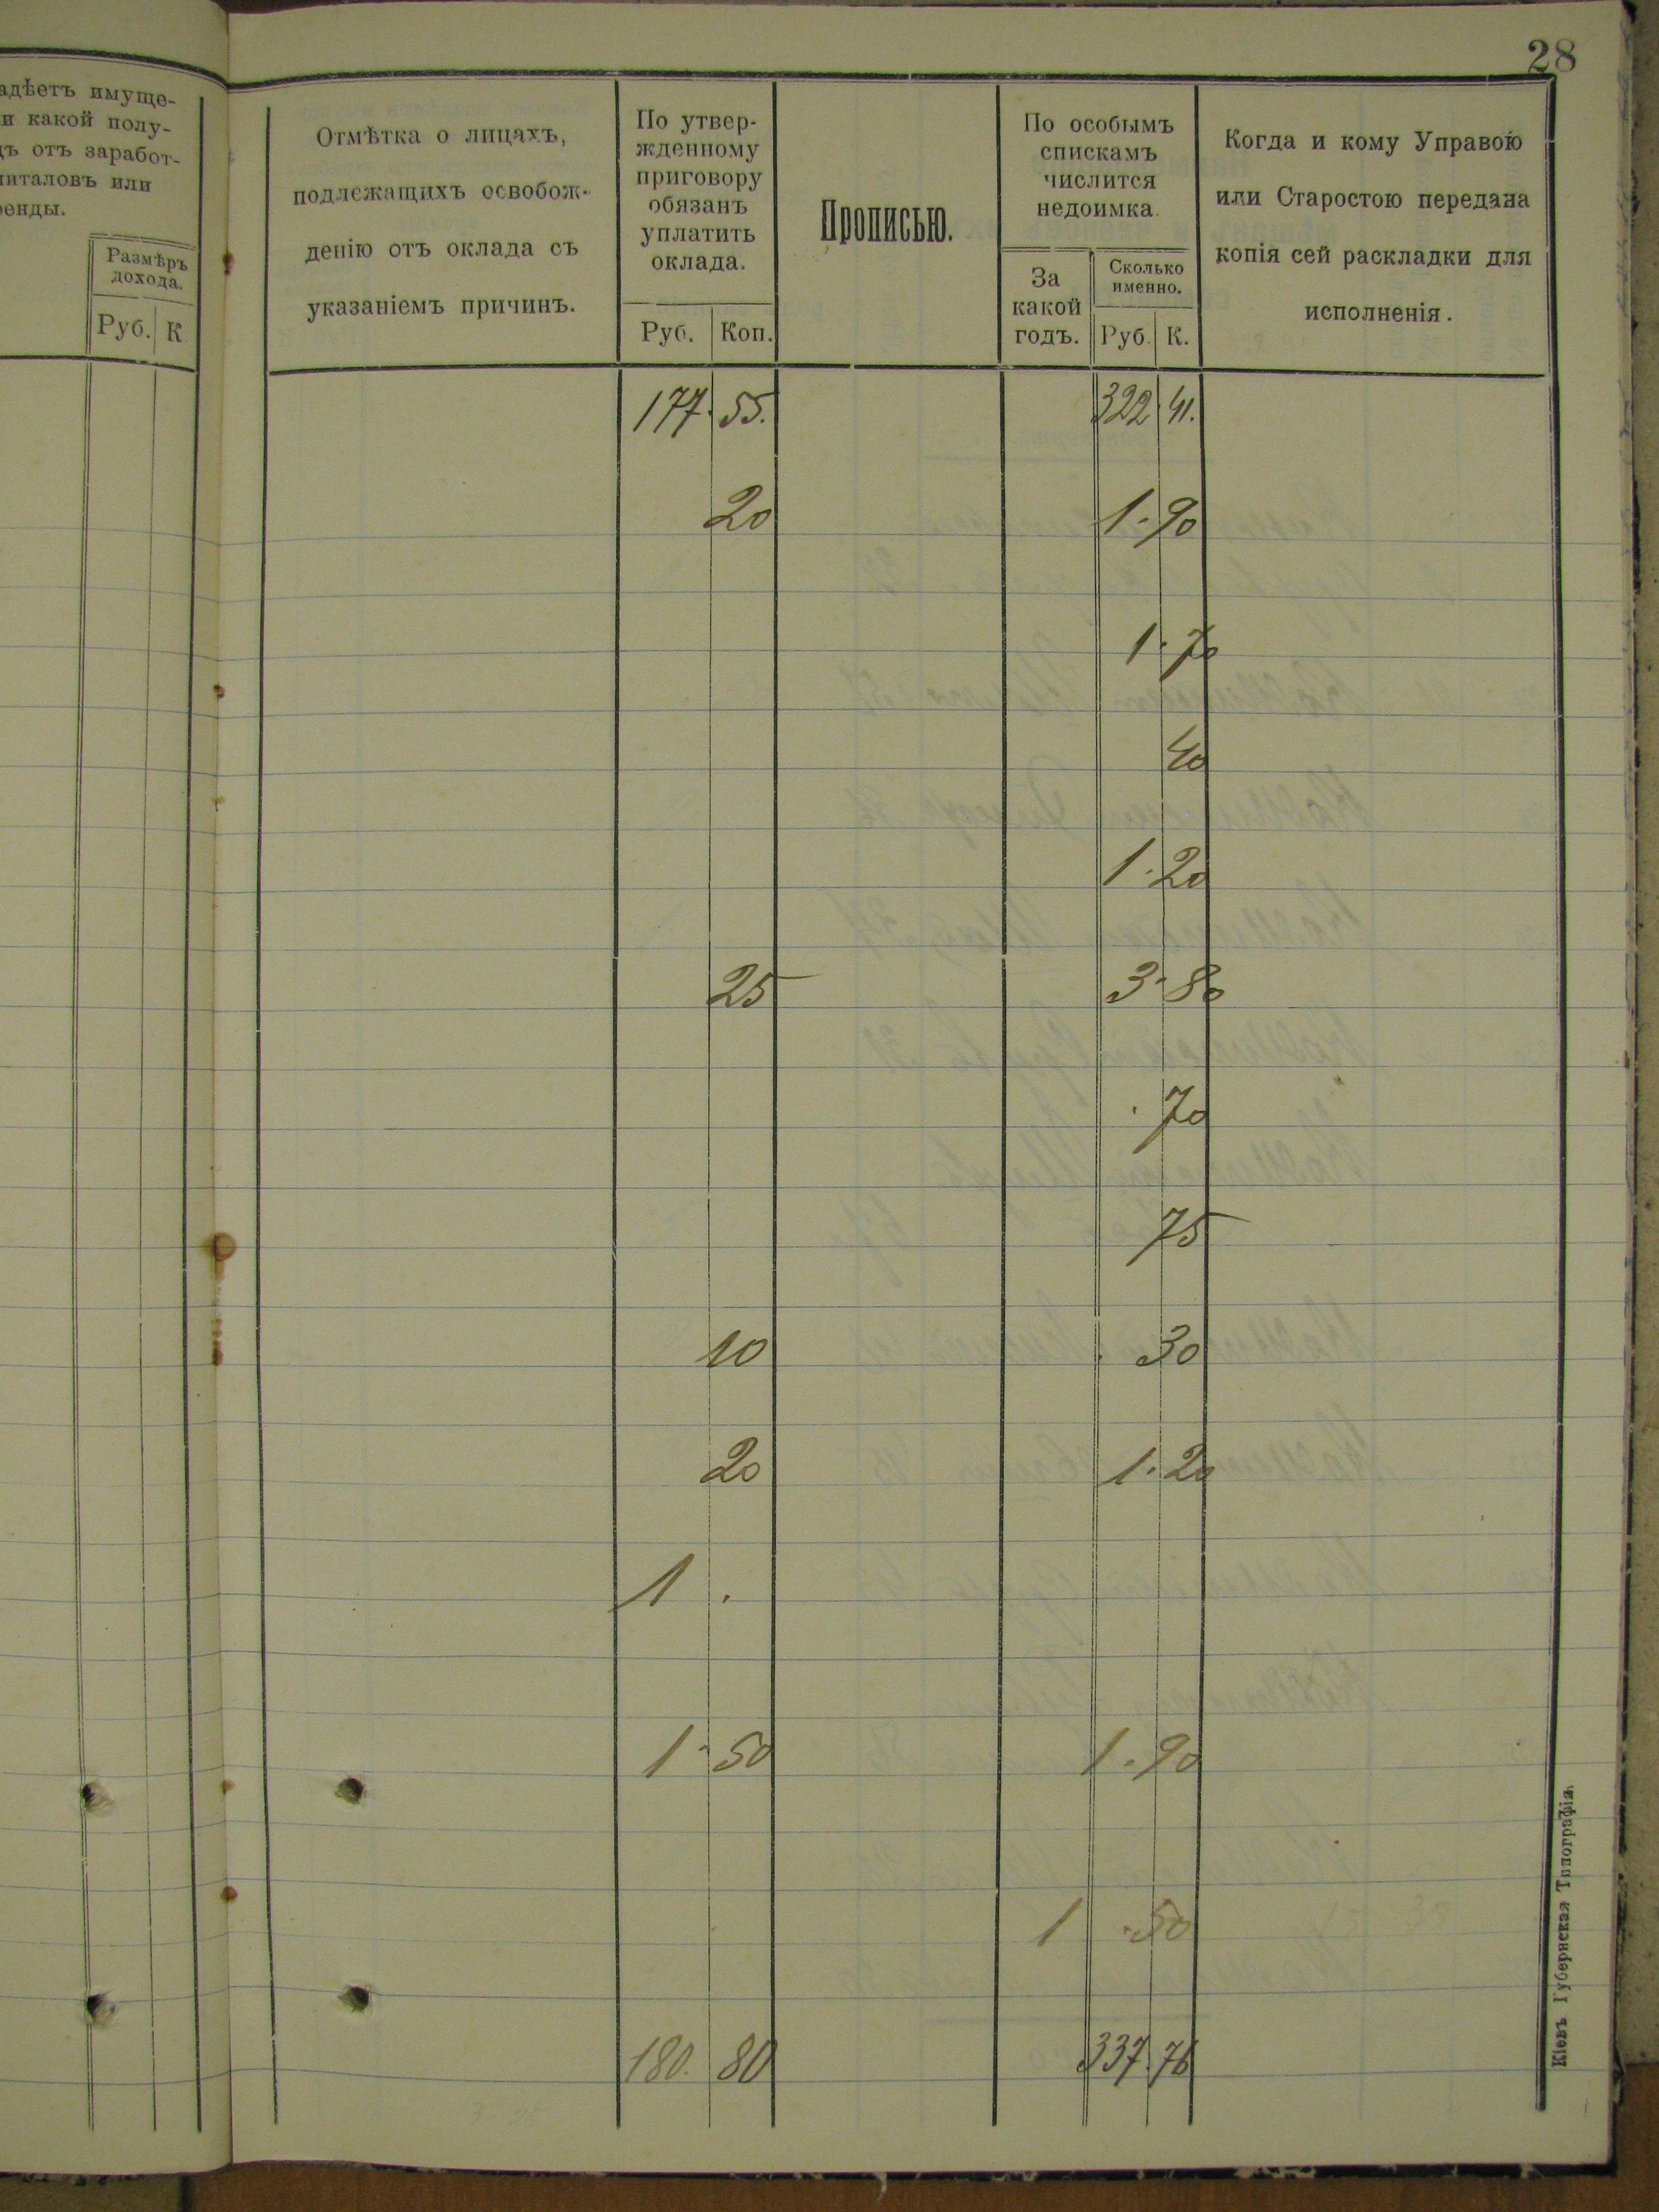 28
адѣетъ имуще-
и какой полу-
ъ отъ заработ-
италовъ или
енды.
Размѣръ
дохода.
Руб. К
Отмѣтка о лицахъ,
подлежащихъ освобож-
денію отъ оклада съ
указаніемъ причинъ.
По утвер-
жденному
приговору
обязанъ
уплатить
оклада.
Руб. Коп.
Прописью.
По особымъ
спискамъ
числится
недоимка.
За
какой
годъ.
Сколько
именно.
Руб. К.
Когда и кому Управою
или Старостою передана
копія сей раскладки для
исполненія.
177. 55. 322. 41.
20 1. 90
1. 70
40
1. 20
25 3. 80
. 70
75
10 . 30
20 1. 20
1 .
1. 50 1. 90
1 . 50
180. 80 337. 76
Кіевъ Губернская Типографія.